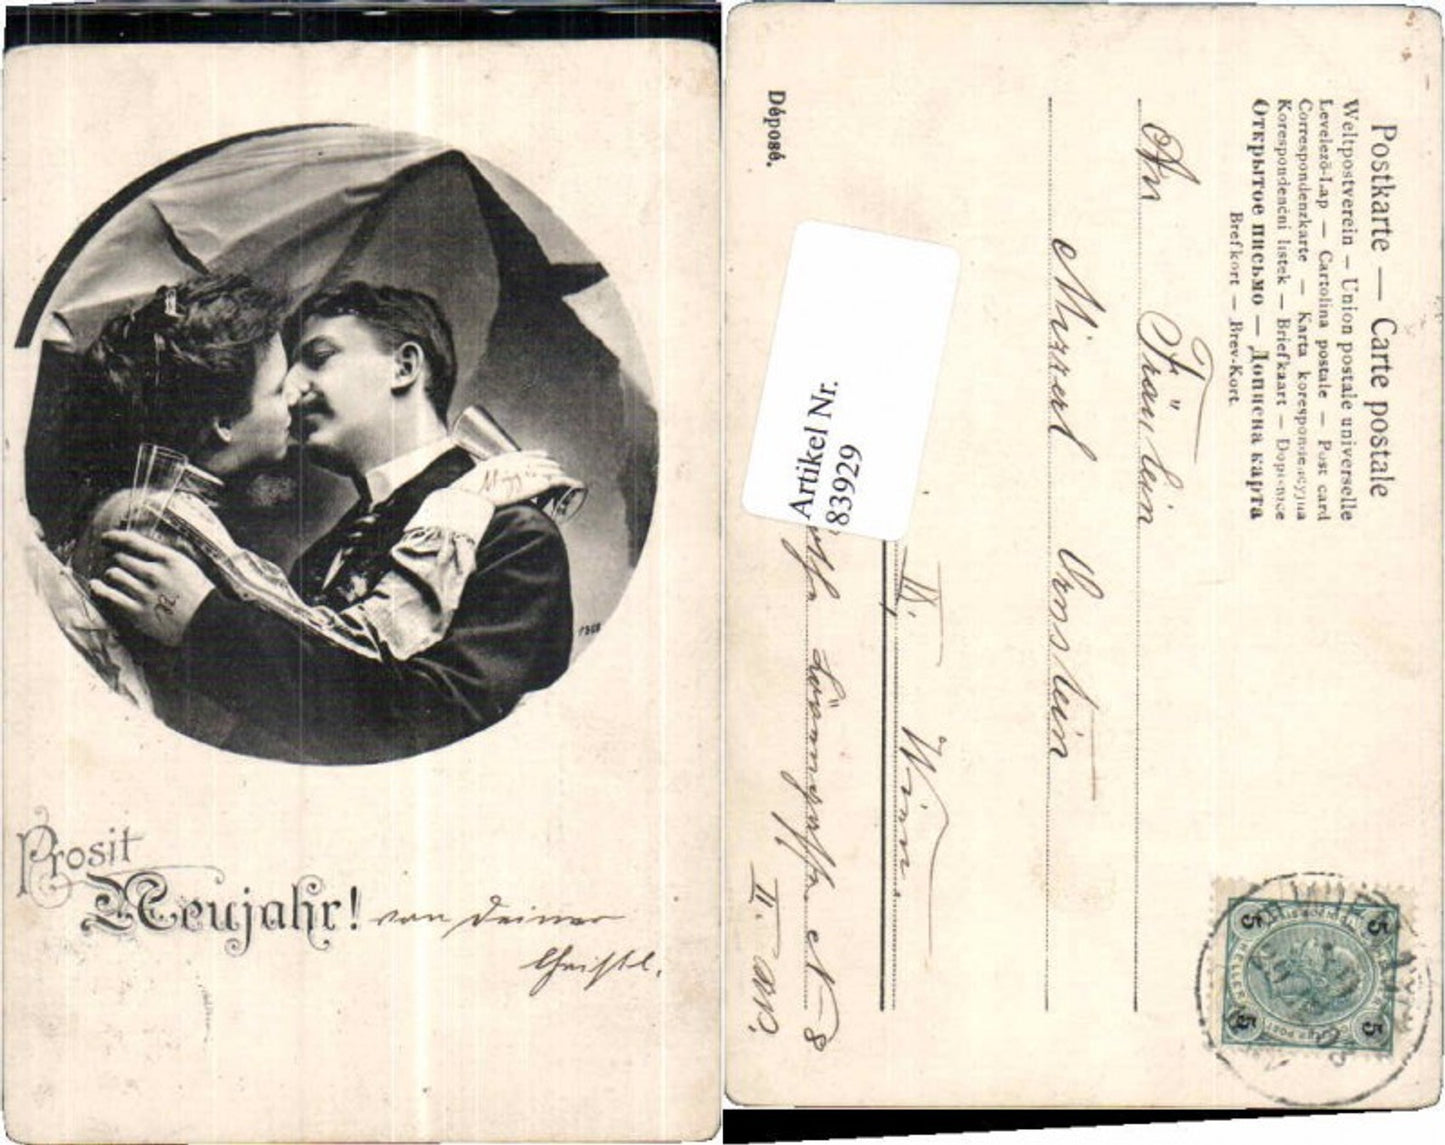 Prosit
Neujahr! von Deiner
Christl.
1366
Postkarte — Carte postale
Weltpostverein — Union postale universelle
Levelező-Lap — Cartolina postale — Post card
Correspondenzkarte — Karta korespondencyjna
Korespondenční lístek — Briefkaart — Dopisnice
Открытое письмо — Дописна карта
Brefkort — Brev-Kort.
An Fräulein
Mizzerl Ornstein
IX. Wien.
N° 8
II.
Déposé.
Artikel Nr.
83929
5 5
5 5